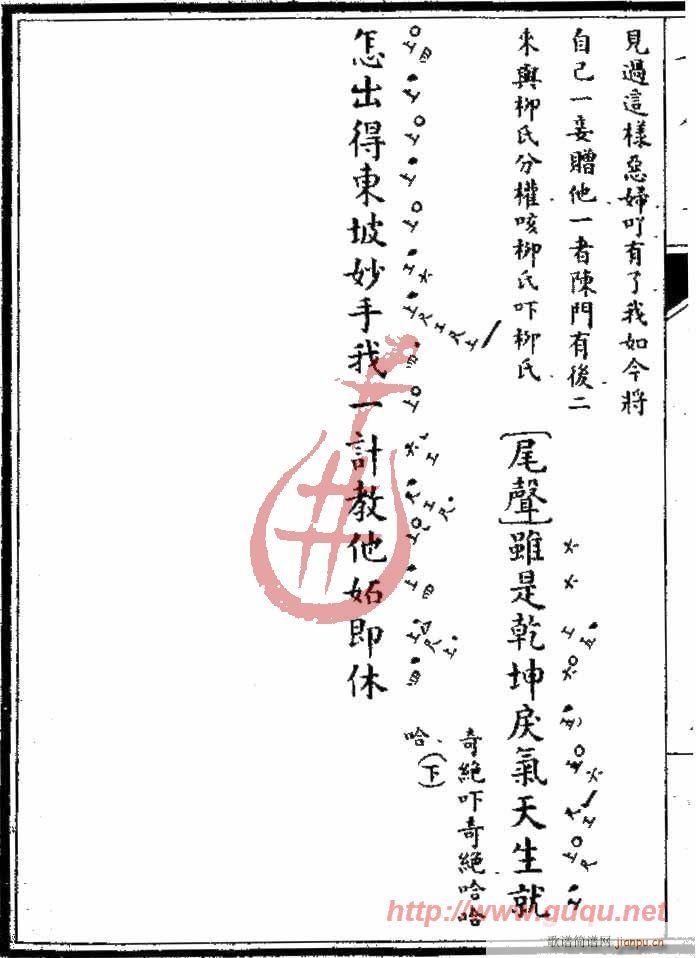 見過這樣惡婦吖有了我如今將
自己一妾贈他一者陳門有後二
來與柳氏分權咳柳氏吓柳氏
〔尾聲〕雖是乾坤戾氣天生就
怎出得東坡妙手我一計教他妬即休
奇絕吓奇絕哈哈
哈(下)
http://www.guqu.net
歌谱简谱网 jianpu.cn